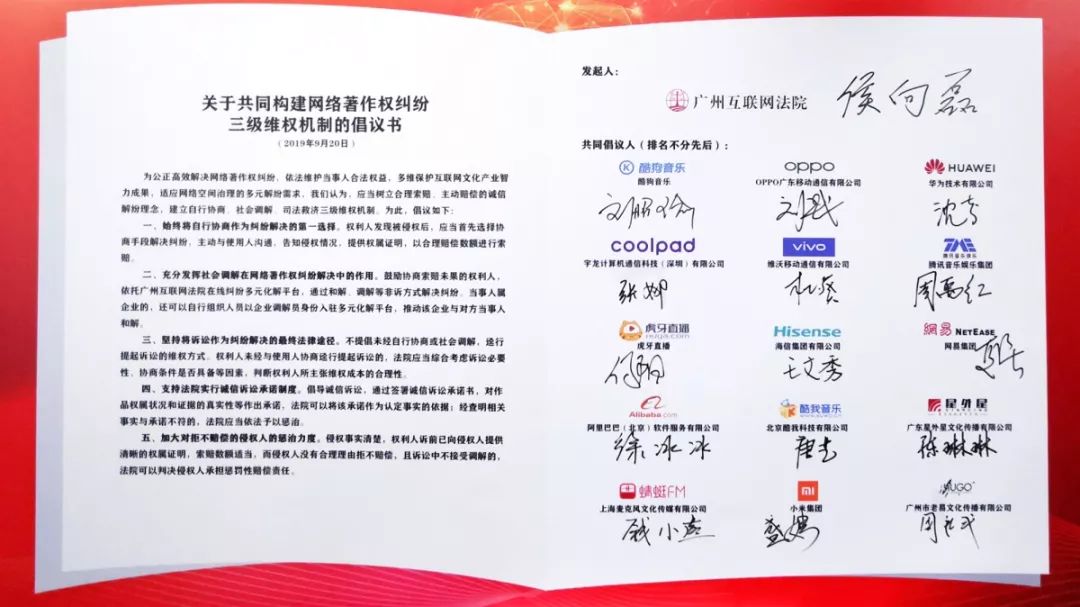 关于共同构建网络著作权纠纷
三级维权机制的倡议书
（2019年9月20日）
为公正高效解决网络著作权纠纷，依法维护当事人合法权益，多维保护互联网文化产业智
力成果，适应网络空间治理的多元解纷需求，我们认为，应当树立合理索赔、主动赔偿的诚信
解纷理念，建立自行协商、社会调解、司法救济三级维权机制。为此，倡议如下：
一、始终将自行协商作为纠纷解决的第一选择。权利人发现被侵权后，应当首先选择协
商手段解决纠纷，主动与使用人沟通，告知侵权情况，提供权属证明，以合理赔偿数额进行索
赔。
二、充分发挥社会调解在网络著作权纠纷解决中的作用。鼓励协商索赔未果的权利人，
依托广州互联网法院在线纠纷多元化解平台，通过和解、调解等非诉方式解决纠纷。当事人属
企业的，还可以自行组织人员以企业调解员身份入驻多元化解平台，推动该企业与对方当事人
和解。
三、坚持将诉讼作为纠纷解决的最终法律途径。不提倡未经自行协商或社会调解，迳行
提起诉讼的维权方式。权利人未经与使用人协商迳行提起诉讼的，法院应当综合考虑诉讼必要
性、协商条件是否具备等因素，判断权利人所主张维权成本的合理性。
四、支持法院实行诚信诉讼承诺制度。倡导诚信诉讼，通过签署诚信诉讼承诺书，对作
品权属状况和证据的真实性等作出承诺，法院可以将该承诺作为认定事实的依据；经查明相关
事实与承诺不符的，法院应当依法予以惩治。
五、加大对拒不赔偿的侵权人的惩治力度。侵权事实清楚，权利人诉前已向侵权人提供
清晰的权属证明，索赔数额适当，而侵权人没有合理理由拒不赔偿，且诉讼中不接受调解的，
法院可以判决侵权人承担惩罚性赔偿责任。
发起人：
广州互联网法院 侯向磊
共同倡议人（排名不分先后）：
酷狗音乐 OPPO HUAWEI
酷狗音乐 OPPO广东移动通信有限公司 华为技术有限公司
coolpad vivo TME
腾讯音乐娱乐
宇龙计算机通信科技（深圳）有限公司 维沃移动通信有限公司 腾讯音乐娱乐集团
张娜
虎牙直播 Hisense 網易 NETEASE
HUYA.com
虎牙直播 海信集团有限公司 网易集团
王文秀
Alibaba.com 酷我音乐 星外星
阿里巴巴（北京）软件服务有限公司 北京酷我科技有限公司 广东星外星文化传播有限公司
徐冰冰 陈琳琳
蜻蜓FM 小米集团 广州市老易文化传播有限公司
上海麦克风文化传媒有限公司
钱小燕